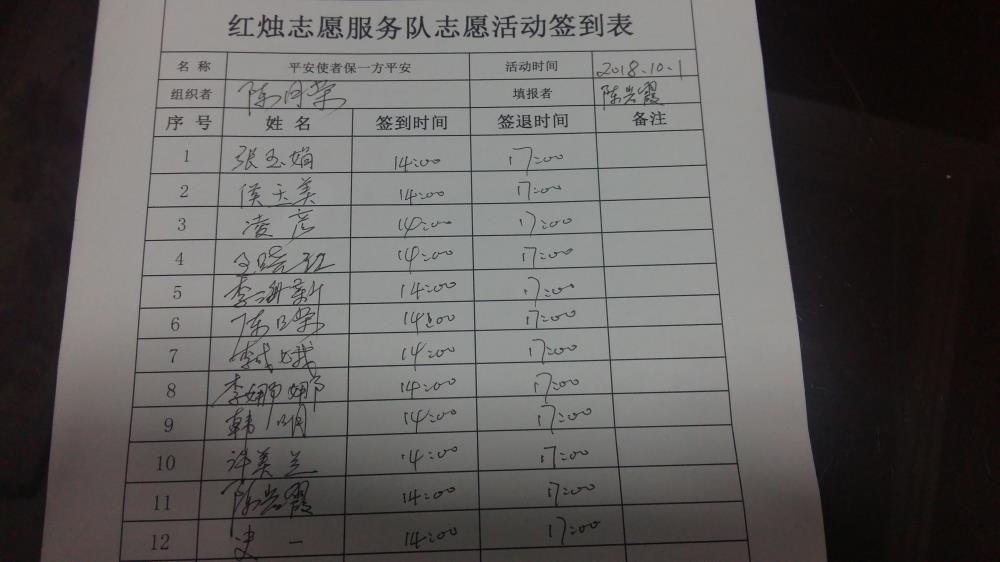 红烛志愿服务队志愿活动签到表
名 称 平安使者保一方平安 活动时间 2018.10.1
组织者 陈月荣 填报者 陈兴霞
序 号 姓 名 签到时间 签退时间 备注
1 张玉娟 14:00 17:00
2 侯玉美 14:00 17:00
3 凌彦 14:00 17:00
4 14:00 17:00
5 李海新 14:00 17:00
6 陈月荣 14:00 17:00
7 14:00 17:00
8 李娜娜 14:00 17:00
9 韩明 14:00 17:00
10 许美兰 14:00 17:00
11 陈兴霞 14:00 17:00
12 史一 14:00 17:00